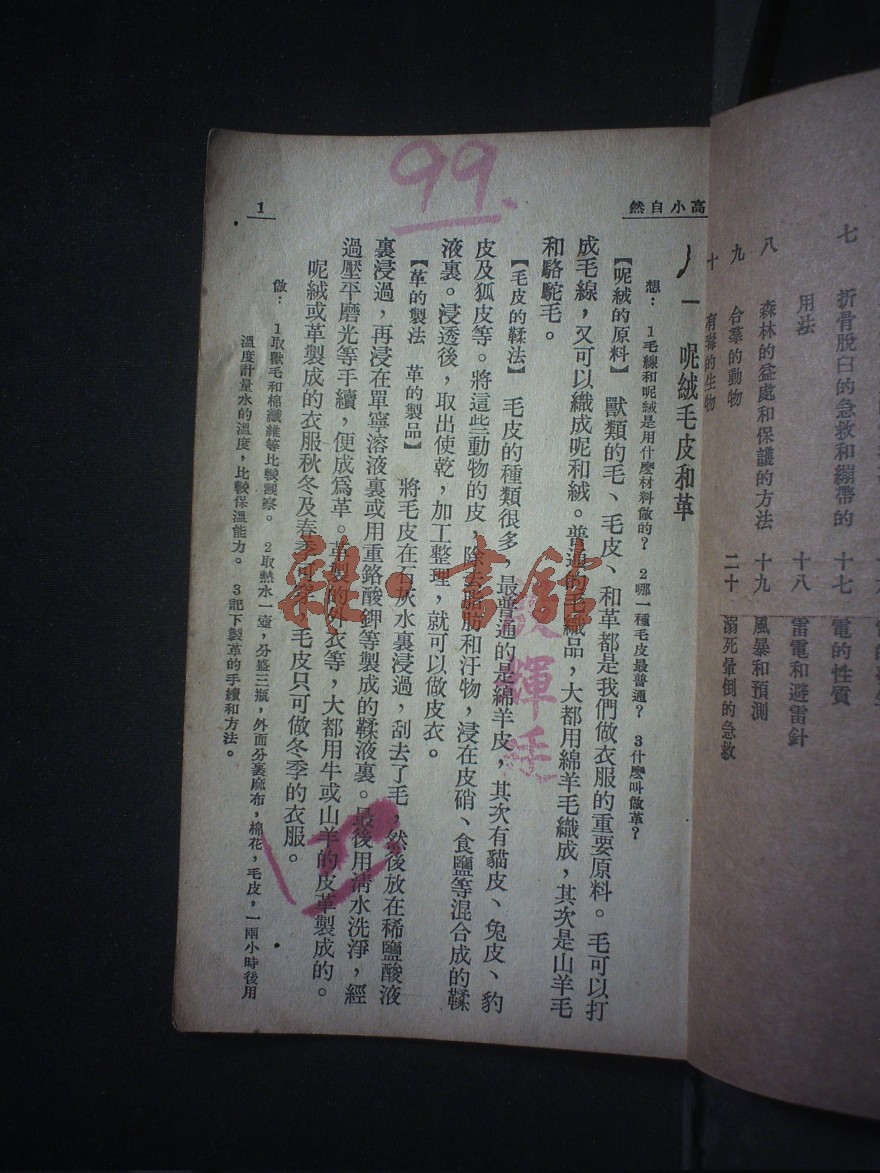 高小自然
1
99.
一 呢絨毛皮和革
想： 1毛線和呢絨是用什麼材料做的？ 2哪一種毛皮最普通？ 3什麼叫做革？
【呢絨的原料】 獸類的毛、毛皮、和革都是我們做衣服的重要原料。毛可以打
成毛線，又可以織成呢和絨。普通的毛織品，大都用綿羊毛織成，其次是山羊毛
和駱駝毛。
【毛皮的鞣法】 毛皮的種類很多，最普通的是綿羊皮，其次有貓皮、兔皮、豹
皮及狐皮等。將這些動物的皮，除去脂肪和汙物，浸在皮硝、食鹽等混合成的鞣
液裏。浸透後，取出使乾，加工整理，就可以做皮衣。
【革的製法 革的製品】 將毛皮在石灰水裏浸過，刮去了毛，然後放在稀鹽酸液
裏浸過，再浸在單寧溶液裏或用重鉻酸鉀等製成的鞣液裏。最後用清水洗淨，經
過壓平磨光等手續，便成爲革。革製的外衣等，大都用牛或山羊的皮革製成的。
呢絨或革製成的衣服秋冬及春季可穿，毛皮只可做冬季的衣服。
做： 1取獸毛和棉纖維等比較觀察。 2取熱水一壺，分盛三瓶，外面分裹麻布，棉花，毛皮，一兩小時後用
溫度計量水的溫度，比較保溫能力。 3記下製革的手續和方法。
七 折骨脫臼的急救和繃帶的
用法
八 森林的益處和保護的方法
九 合羣的動物
十 有毒的生物
十七 電的性質
十八 雷電和避雷針
十九 風暴和預測
二十 溺死暈倒的急救
雜·書館